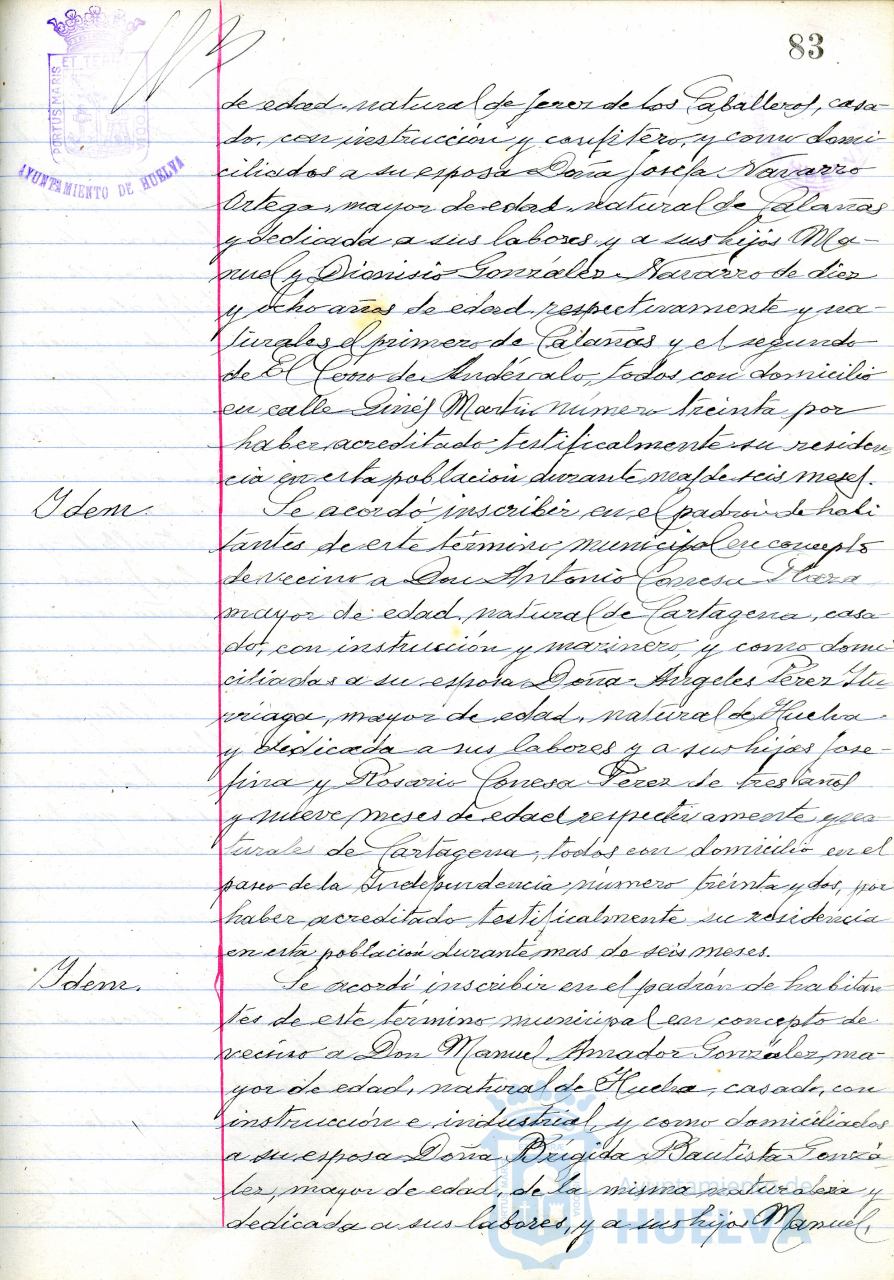 83
PORTUS MARIS ET TERRÆ CUSTODIA
AYUNTAMIENTO DE HUELVA
de edad, natural de Jerez de los Caballeros, casa-
do, con instrucción y confitero, y como domi-
ciliados a su esposa Doña Josefa Navarro
Ortega, mayor de edad, natural de Calañas
y dedicada a sus labores y a sus hijos Ma-
nuel y Dionisio González Navarro de diez
y ocho años de edad respectivamente y na-
turales el primero de Calañas y el segundo
de El Cerro de Andévalo, todos con domicilio
en calle Ginés Martín número treinta por
haber acreditado testificalmente su residen-
cia en esta población durante mas de seis meses.
Idem.
Se acordó inscribir en el padrón de habi
tantes de este término municipal en concepto
de vecino a Don Antonio Conesa
mayor de edad, natural de Cartagena, casa
do, con instrucción y marinero, y como domi
ciliadas a su esposa Doña Angeles Pérez Itu
rriaga, mayor de edad, natural de Huelva
y dedicada a sus labores y a sus hijas Jose-
fina y Rosario Conesa Pérez de tres años
y nueve meses de edad respectivamente y na
turales de Cartagena, todos con domicilio en el
paseo de la Independencia, número treinta y dos, por
haber acreditado testificalmente su residencia
en esta población durante mas de seis meses.
Idem.
Se acordó inscribir en el padrón de habitan
tes de este término municipal en concepto de
vecino a Don Manuel Amador González, ma-
yor de edad, natural de Huelva, casado, con
instrucción e industrial, y como domiciliados
a su esposa Doña Brigida Bautista Gonzá-
lez, mayor de edad, de la misma naturaleza y
dedicada a sus labores, y a sus hijos Manuel,
Ayuntamiento de
HUELVA